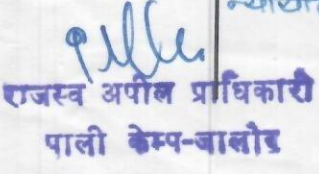 राजस्व अपील प्राधिकारी
पाली केम्प-जालोर